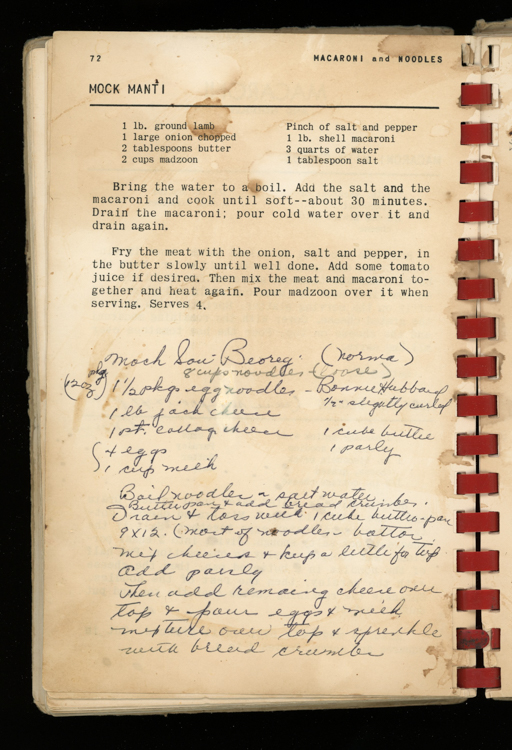 72 MACARONI and NOODLES
MOCK MANTI
1 lb. ground lamb
1 large onion chopped
2 tablespoons butter
2 cups madzoon
Pinch of salt and pepper
1 lb. shell macaroni
3 quarts of water
1 tablespoon salt
Bring the water to a boil. Add the salt and the
macaroni and cook until soft--about 30 minutes.
Drain the macaroni; pour cold water over it and
drain again.
Fry the meat with the onion, salt and pepper, in
the butter slowly until well done. Add some tomato
juice if desired. Then mix the meat and macaroni to-
gether and heat again. Pour madzoon over it when
serving. Serves 4.
Mock Sou Beoreg (Norma)
8 cups noodles (loose)
(12 oz pkg) 1 1/2 pkgs egg noodles - Bonnie Hubbard
1/2" slightly curled
1 lb jack cheese
1 pt. cottag cheese 1 cube butter
4 eggs 1 parsly
1 cup milk
Boil noodles in salt water
Butter pan & add bread crumbs.
Drain & toss with 1 cube butter - pan
9x12. (most of noodles bottom
mix cheeses & keep a little for top
add parsly
Then add remaing cheese over
top & pour eggs & milk
mixture over top & sprinkle
with bread crumbs